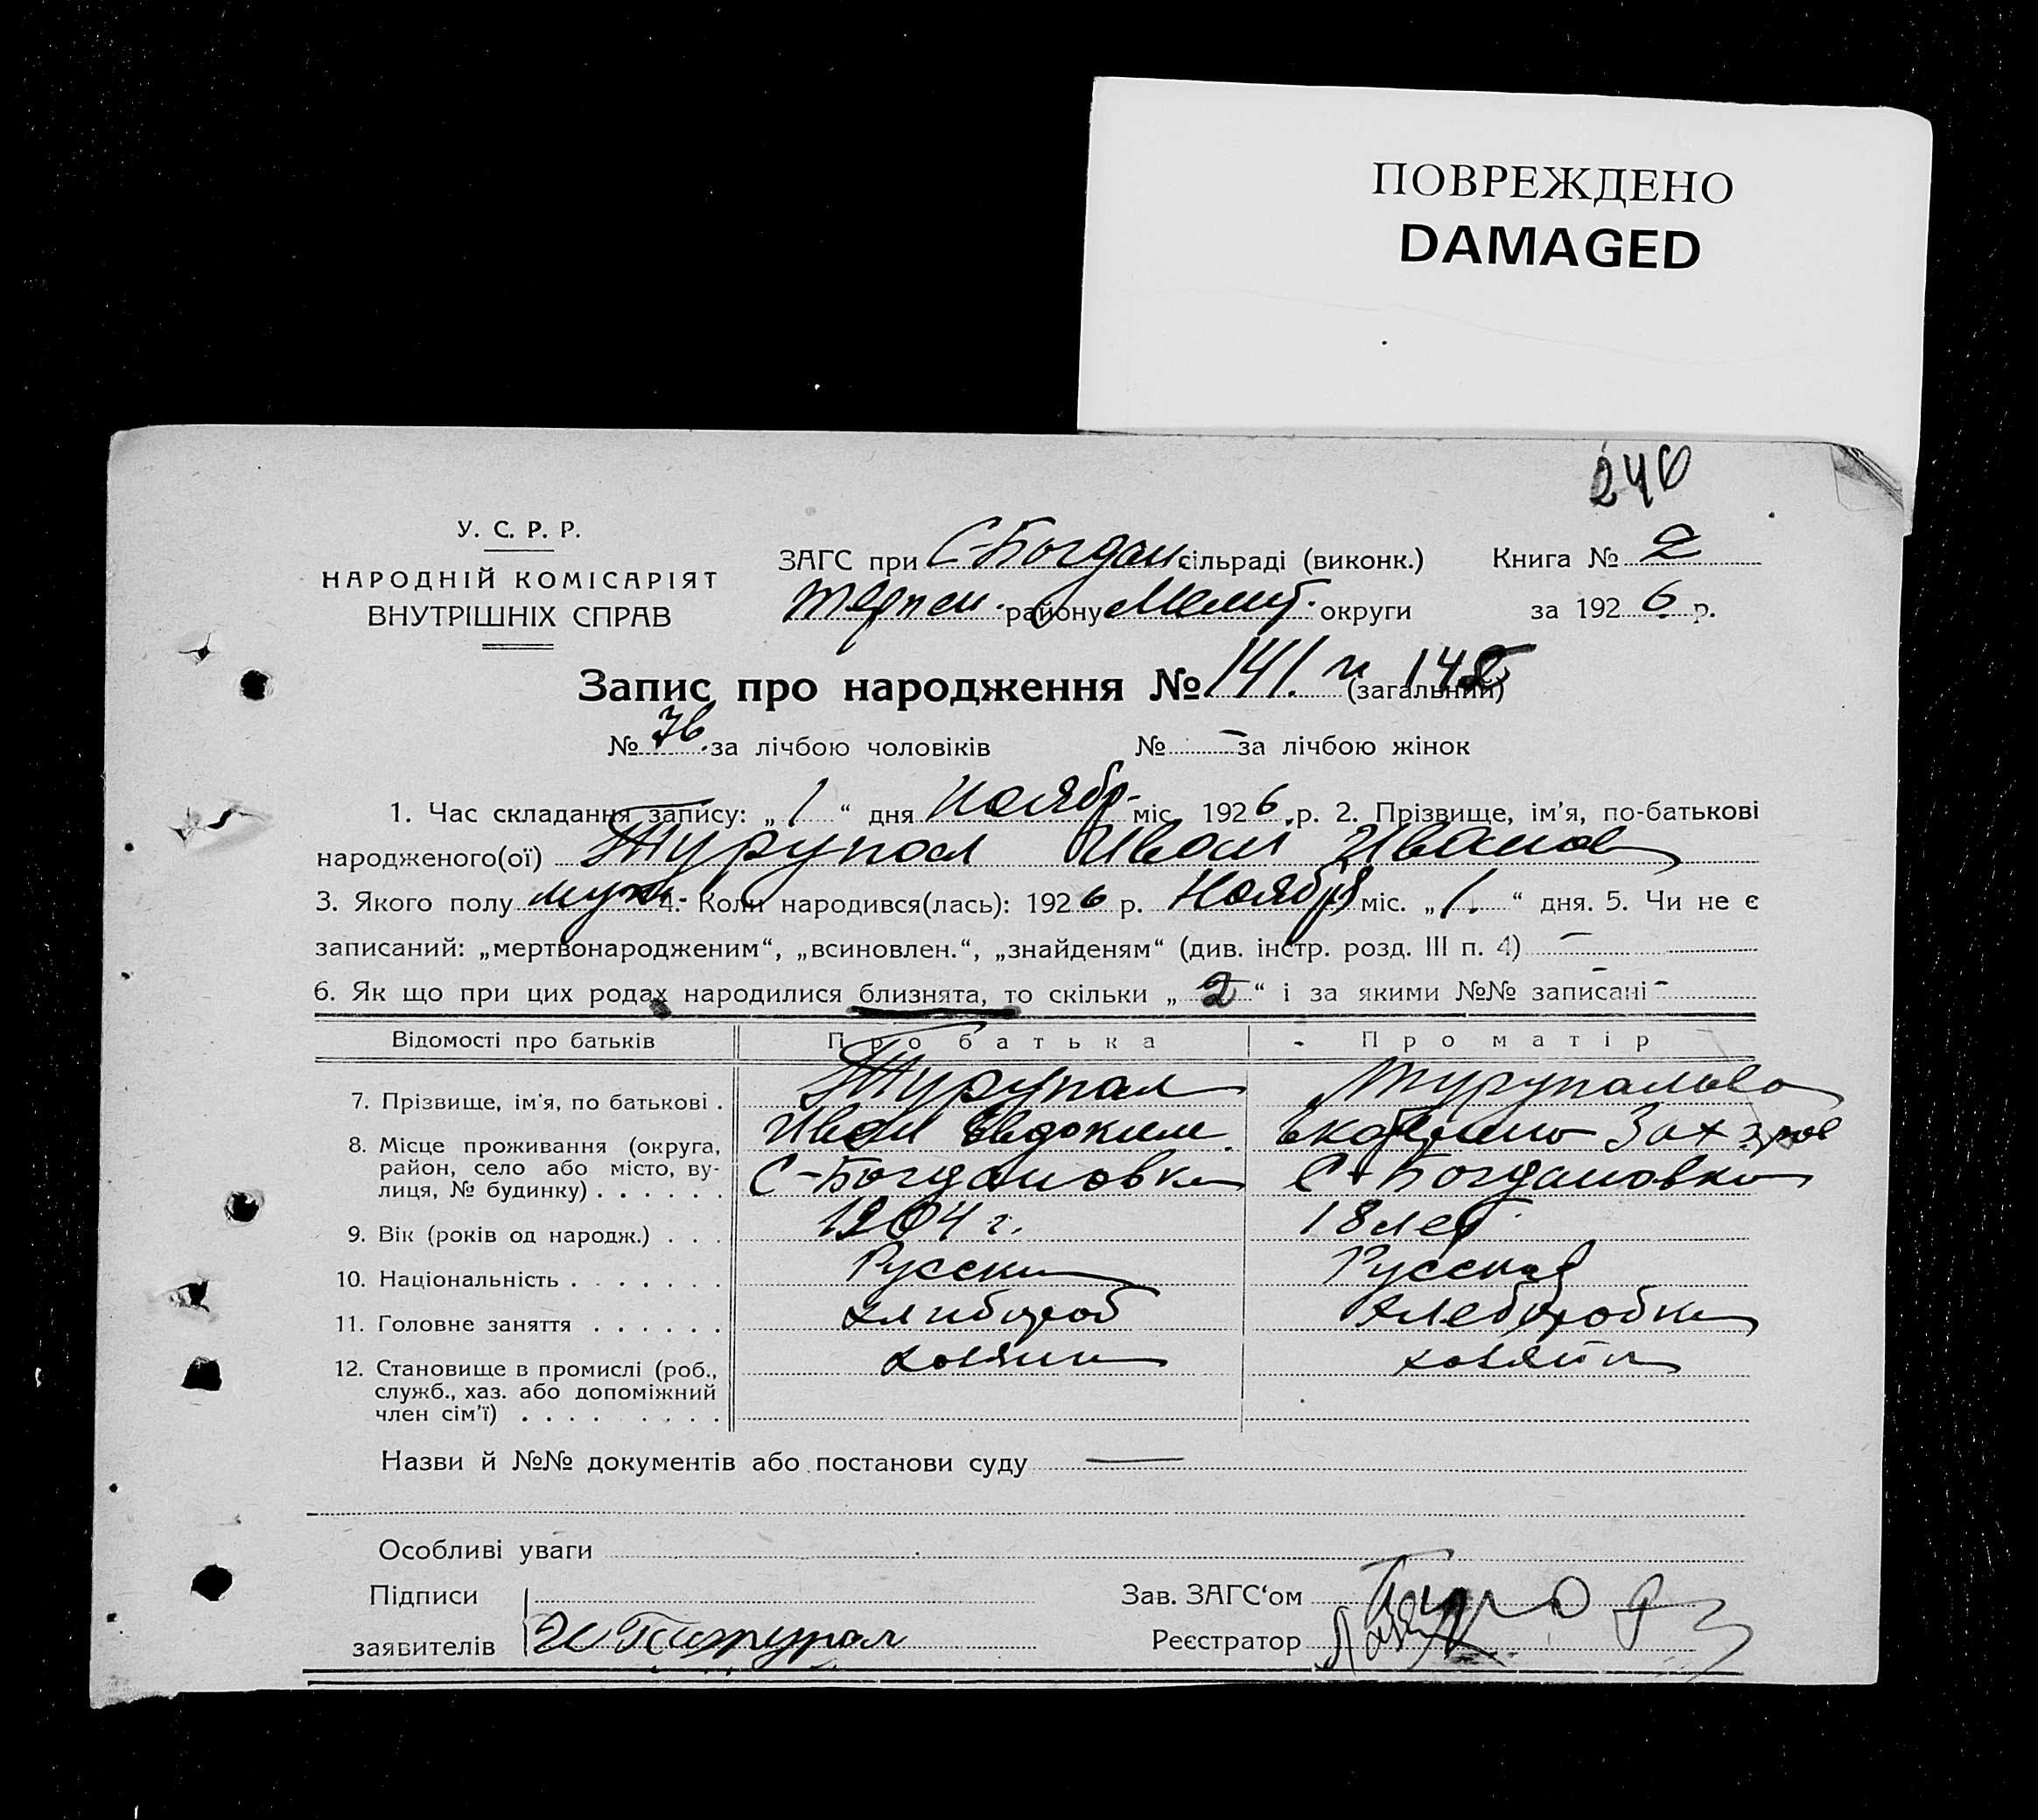 ПОВРЕЖДЕНО
DAMAGED
240
У. С. Р. Р.
НАРОДНІЙ КОМІСАРІЯТ
ВНУТРІШНІХ СПРАВ
ЗАГС при С-Богдан. сільраді (виконк.) Книга № 2
Терпен. району Мелит. округи за 1926 р.
Запис про народження № 141 и 142 (загальний)
№ 76 за лічбою чоловіків № — за лічбою жінок
1. Час складання запису: „1“ дня Ноябр- міс. 1926 р. 2. Прізвище, ім'я, по-батькові
народженого(ої) Турупал Иван Иванов
3. Якого полу муж. 4. Коли народився(лась): 1926 р. Ноября міс. „1.“ дня. 5. Чи не є
записаний: „мертвонародженим“, „всиновлен.“, „знайденям“ (див. інстр. розд. III п. 4) —
6. Як що при цих родах народилися близнята, то скільки „2“ і за якими №№ записані -
Відомості про батьків Про батька Про матір
7. Прізвище, ім'я, по батькові . Турупал Турупалова
Иван Евдоким. Екатерина
8. Місце проживання (округа,
район, село або місто, ву-
лиця, № будинку) . . . . . . С-Богдановка С-Богдановка
9. Вік (років од народж.) . . . 1904 г. 18 лет
10. Національність . . . . . . . Русский Русская
11. Головне заняття . . . . . . хлибороб хлеборобка
12. Становище в промислі (роб.,
служб., хаз. або допоміжний
член сім'ї) . . . . . . . . хозяин хозяйка
Назви й №№ документів або постанови суду —
Особливі уваги
Підписи
заявителів И
Зав. ЗАГС'ом
Реєстратор